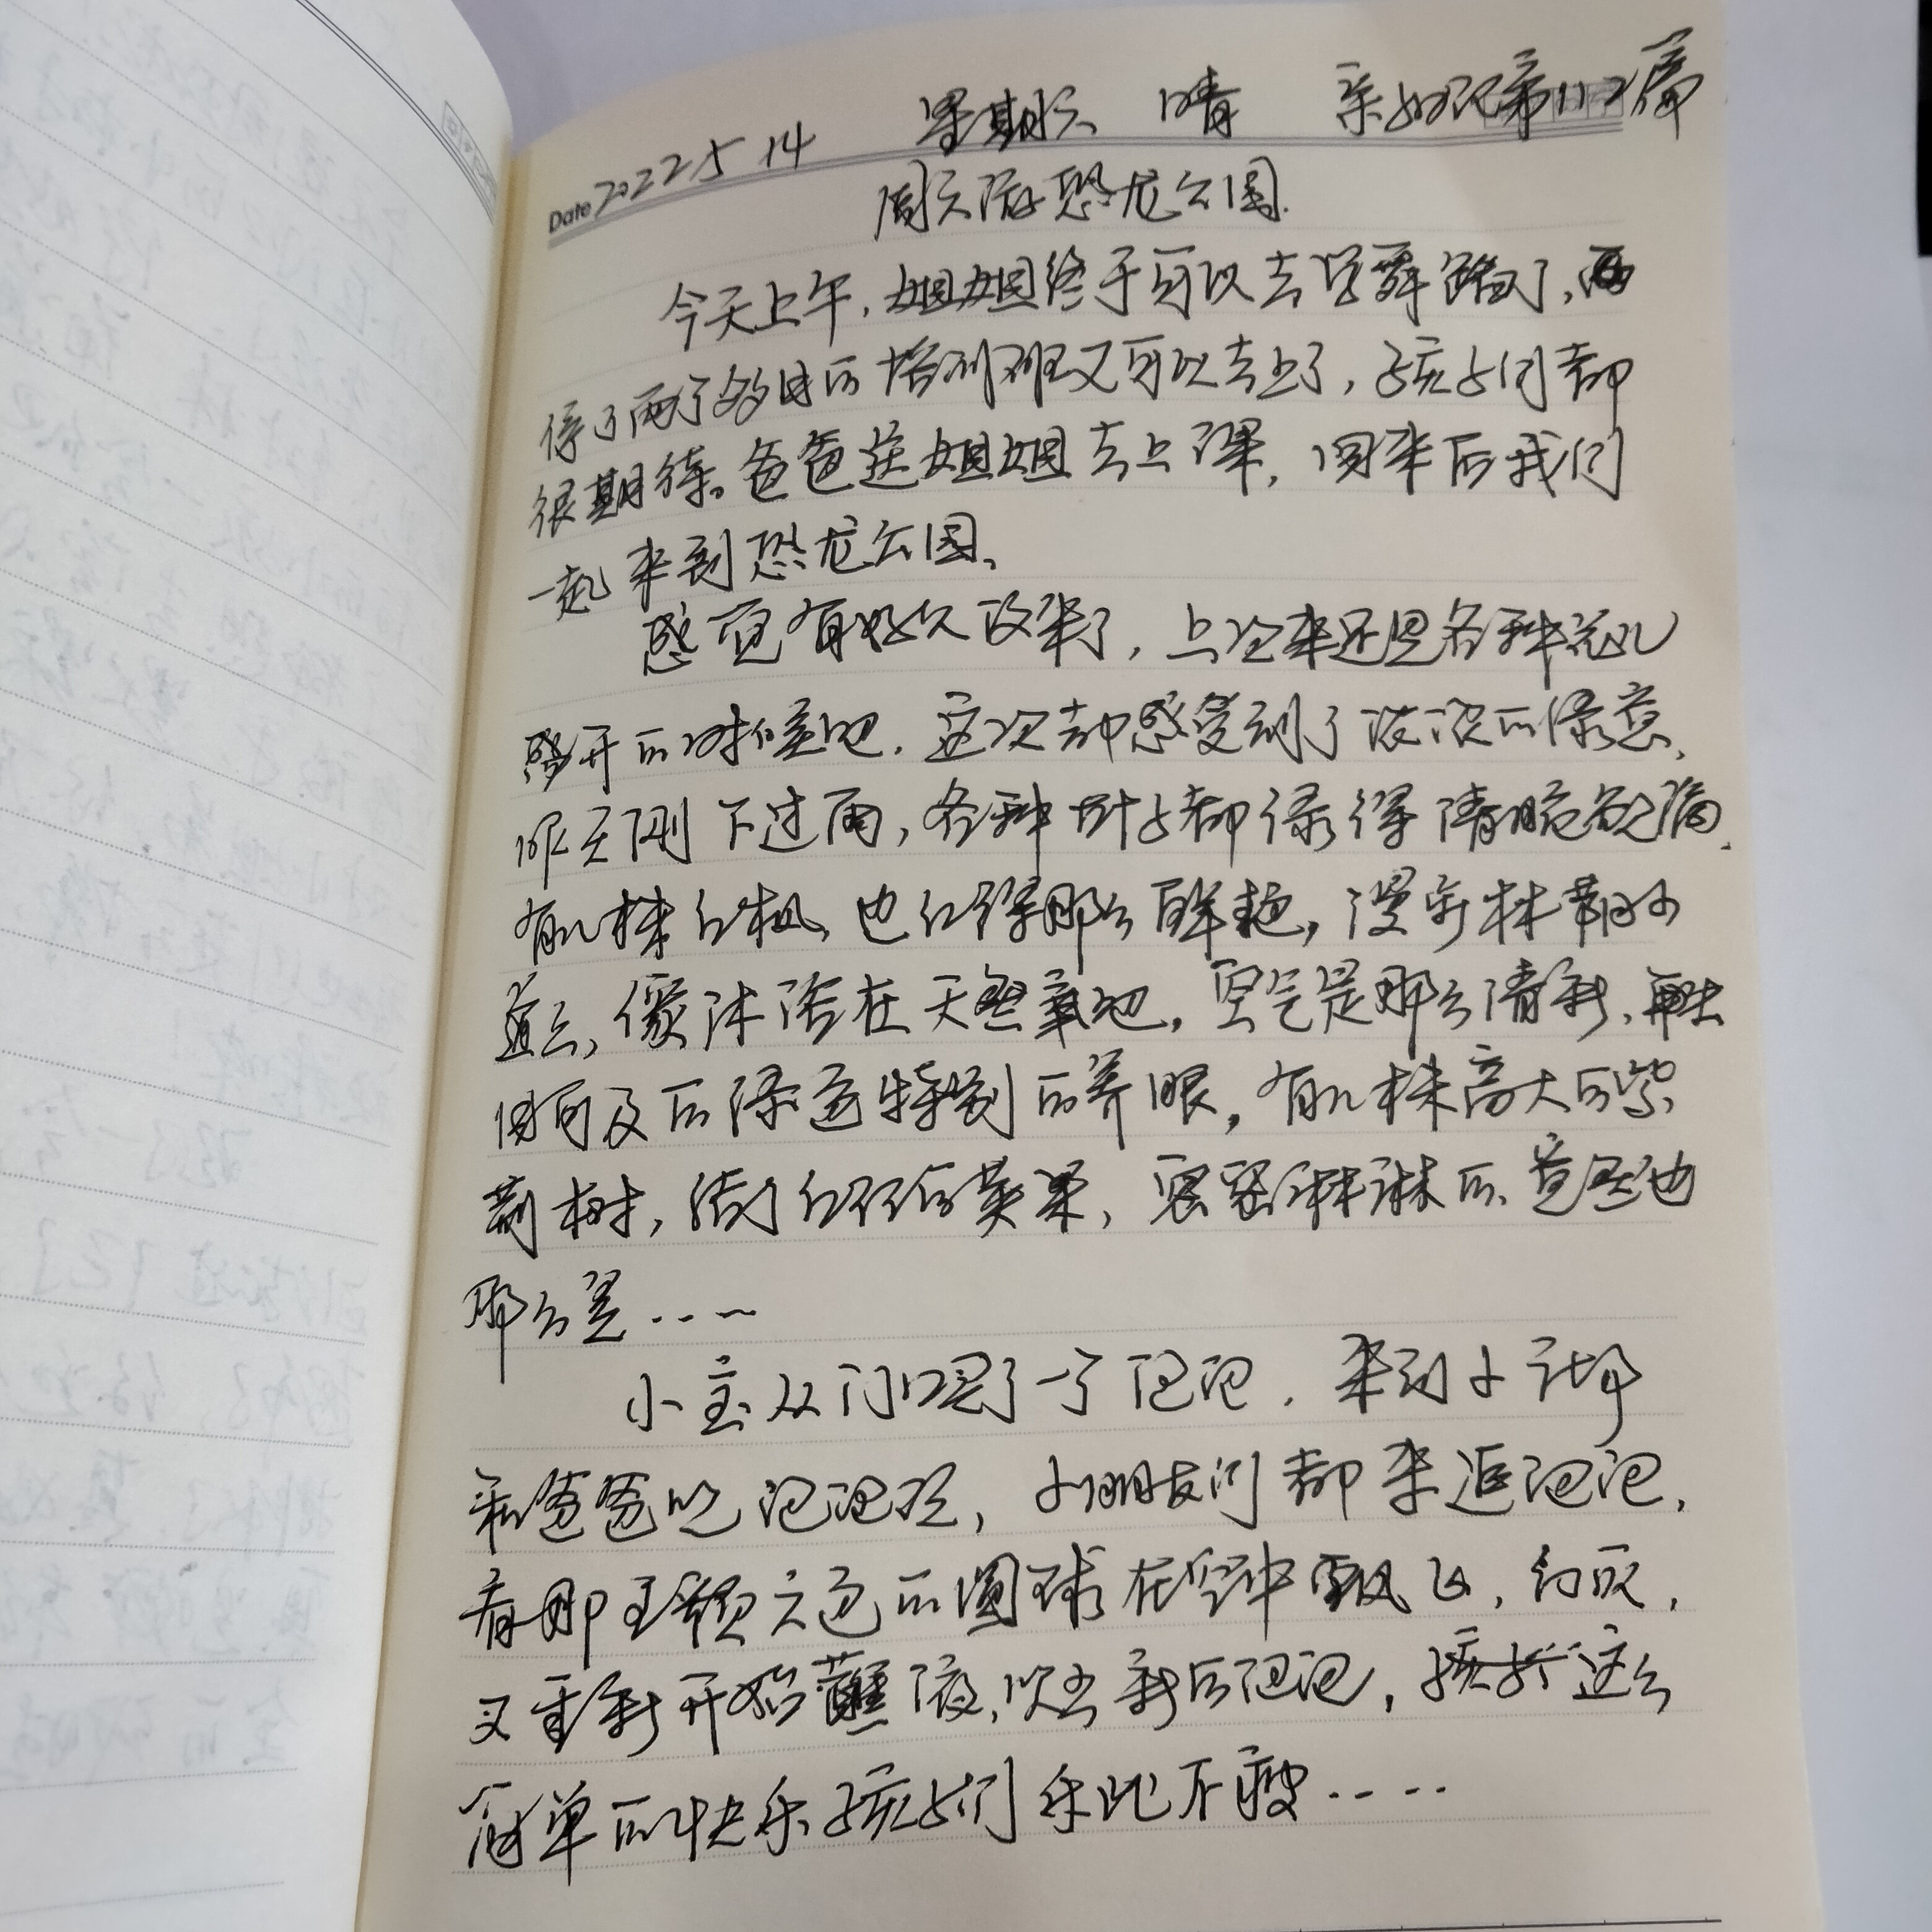 Date 2022 5 14 星期六 晴 亲子日记第112篇
周六游恐龙公园.
今天上午,姐姐终于可以去学舞蹈了,
停了两个多月的培训班又可以去上了,孩子们都
很期待。爸爸送姐姐去上课,回来后我们
一起来到恐龙公园、
感觉有好久没来了,上次来还是各种花儿
盛开的时候吧.这次却感受到了浓浓的绿意、
昨天刚下过雨,各种叶子都绿得清脆欲滴、
有几株红枫、也红得那么鲜艳,漫步林荫小
道上,像沐浴在天然氧吧,空气是那么清新,
目所及的绿色特别的养眼,有几株高大的紫
荆树,结了红红的荚果,密密麻麻的、竟然也
那么美....
小宝从门口买了一个泡泡.来到小
和爸爸吹泡泡玩,小朋友们都来追泡泡,
看那五颜六色的圆球在空中飘飞,幻灭,
又重新开始蘸液,吹出新的泡泡,这么
简单的快乐孩子们乐此不疲....